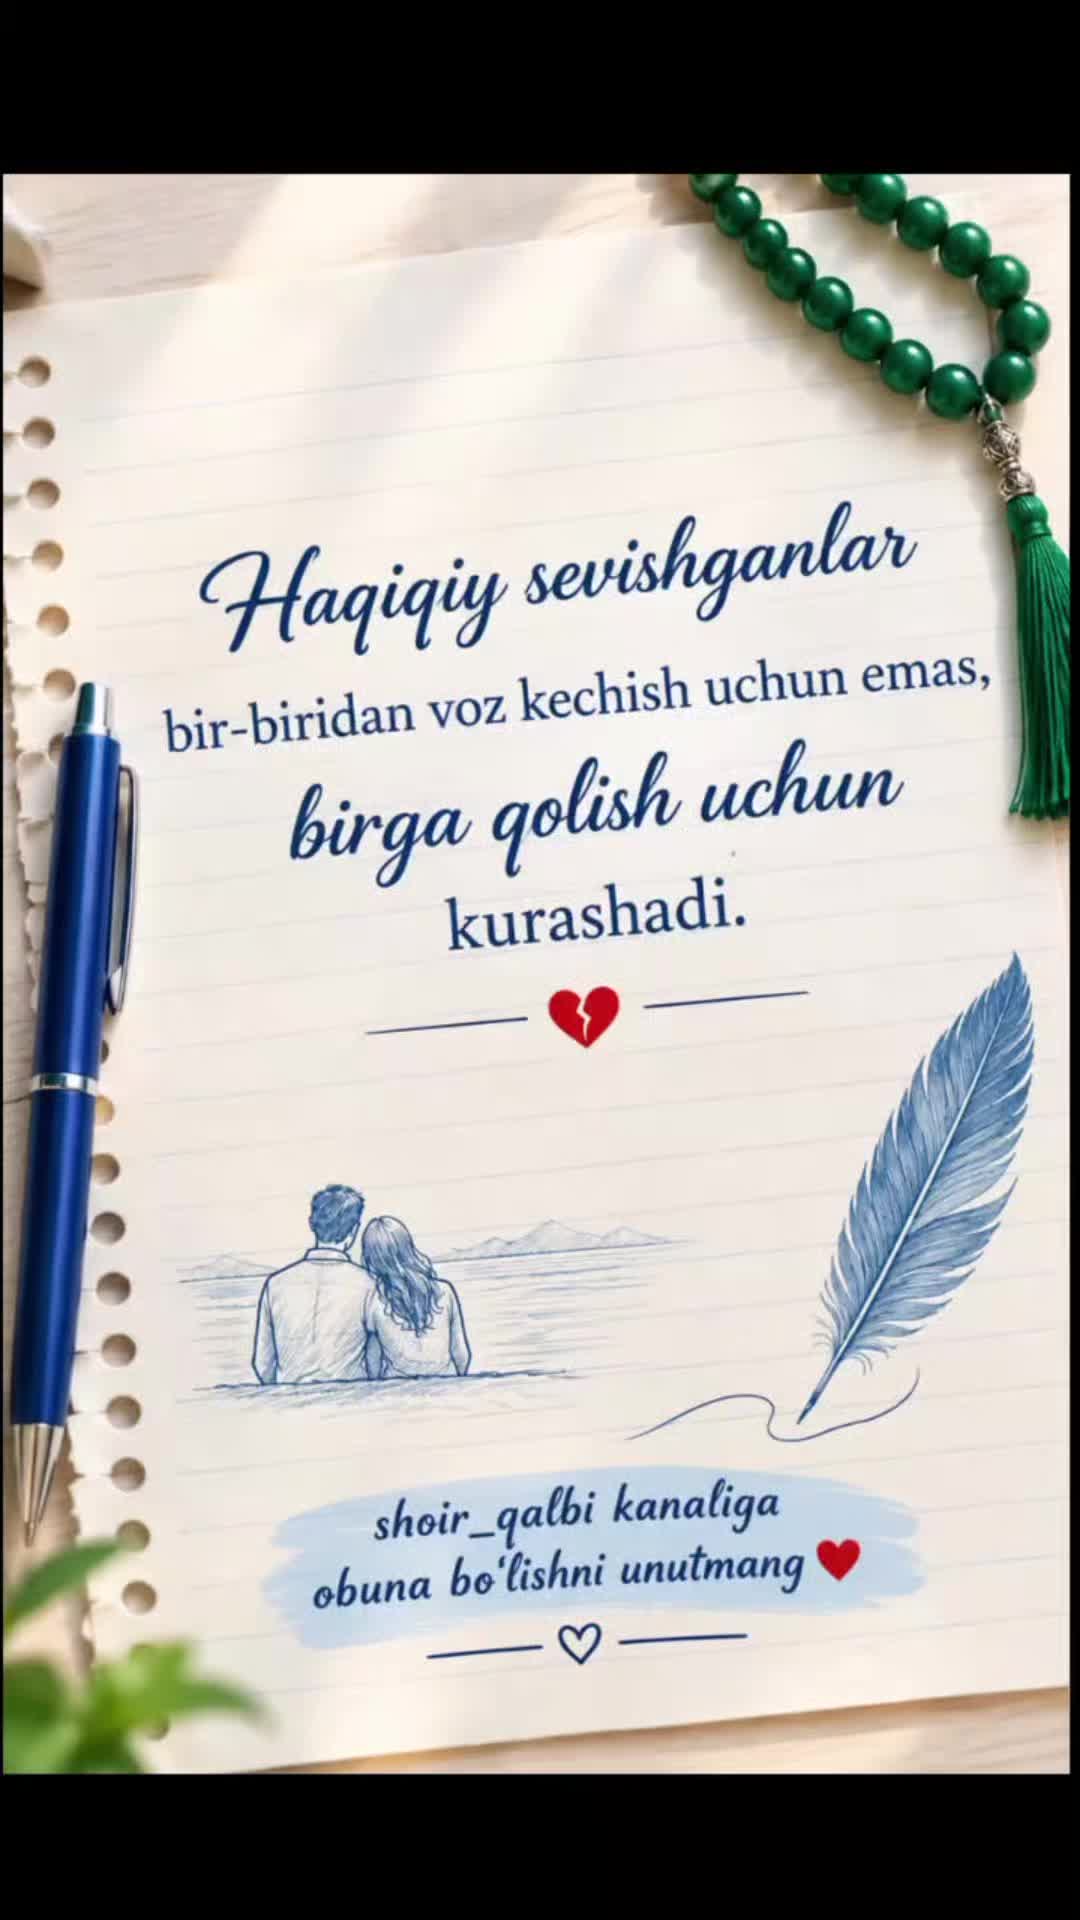 Haqiqiy sevishganlar
bir-biridan voz kechish uchun emas,
birga qolish uchun
kurashadi.
shoir_qalbi kanaliga
obuna bo‘lishni unutmang